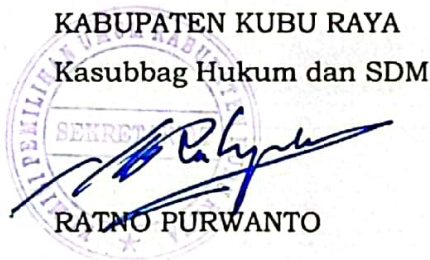 KABUPATEN KUBU RAYA
Kasubbag Hukum dan SDM
RATNO PURWANTO